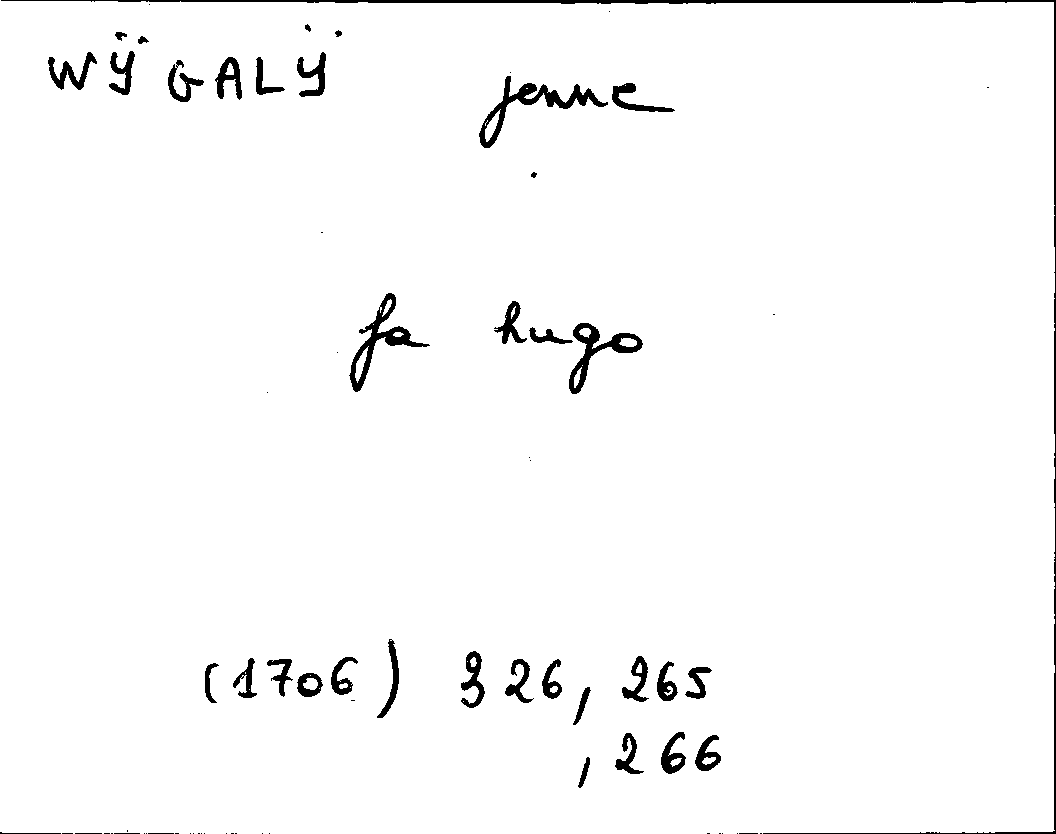 WŸGALŸ jenne
fa hugo
(1706) 326, 265
, 266